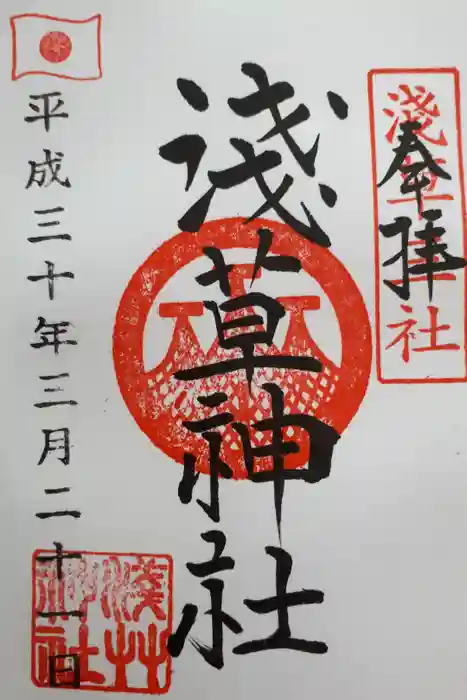 淺草神社
奉拝
淺草神社
平成三十年三月二十一日
浅草神社